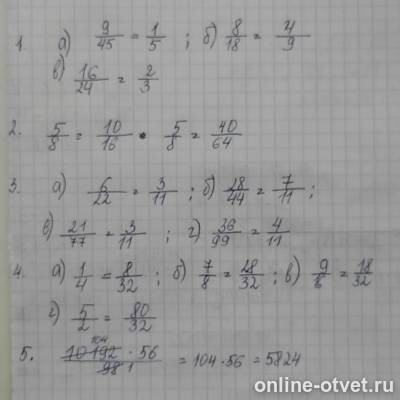 1. а) 9/45 = 1/5 ; б) 8/18 = 4/9
в) 16/24 = 2/3
2. 5/8 = 10/16 • 5/8 = 40/64
3. а) 6/22 = 3/11 ; б) 28/44 = 7/11 ;
в) 21/77 = 3/11 ; г) 36/99 = 4/11
4. а) 1/4 = 8/32 ; б) 7/8 = 28/32 ; в) 9/ = 18/32
г) 5/2 = 80/32
104
5. 10192 · 56 / 98 1 = 104 · 56 = 5824
online-otvet.ru